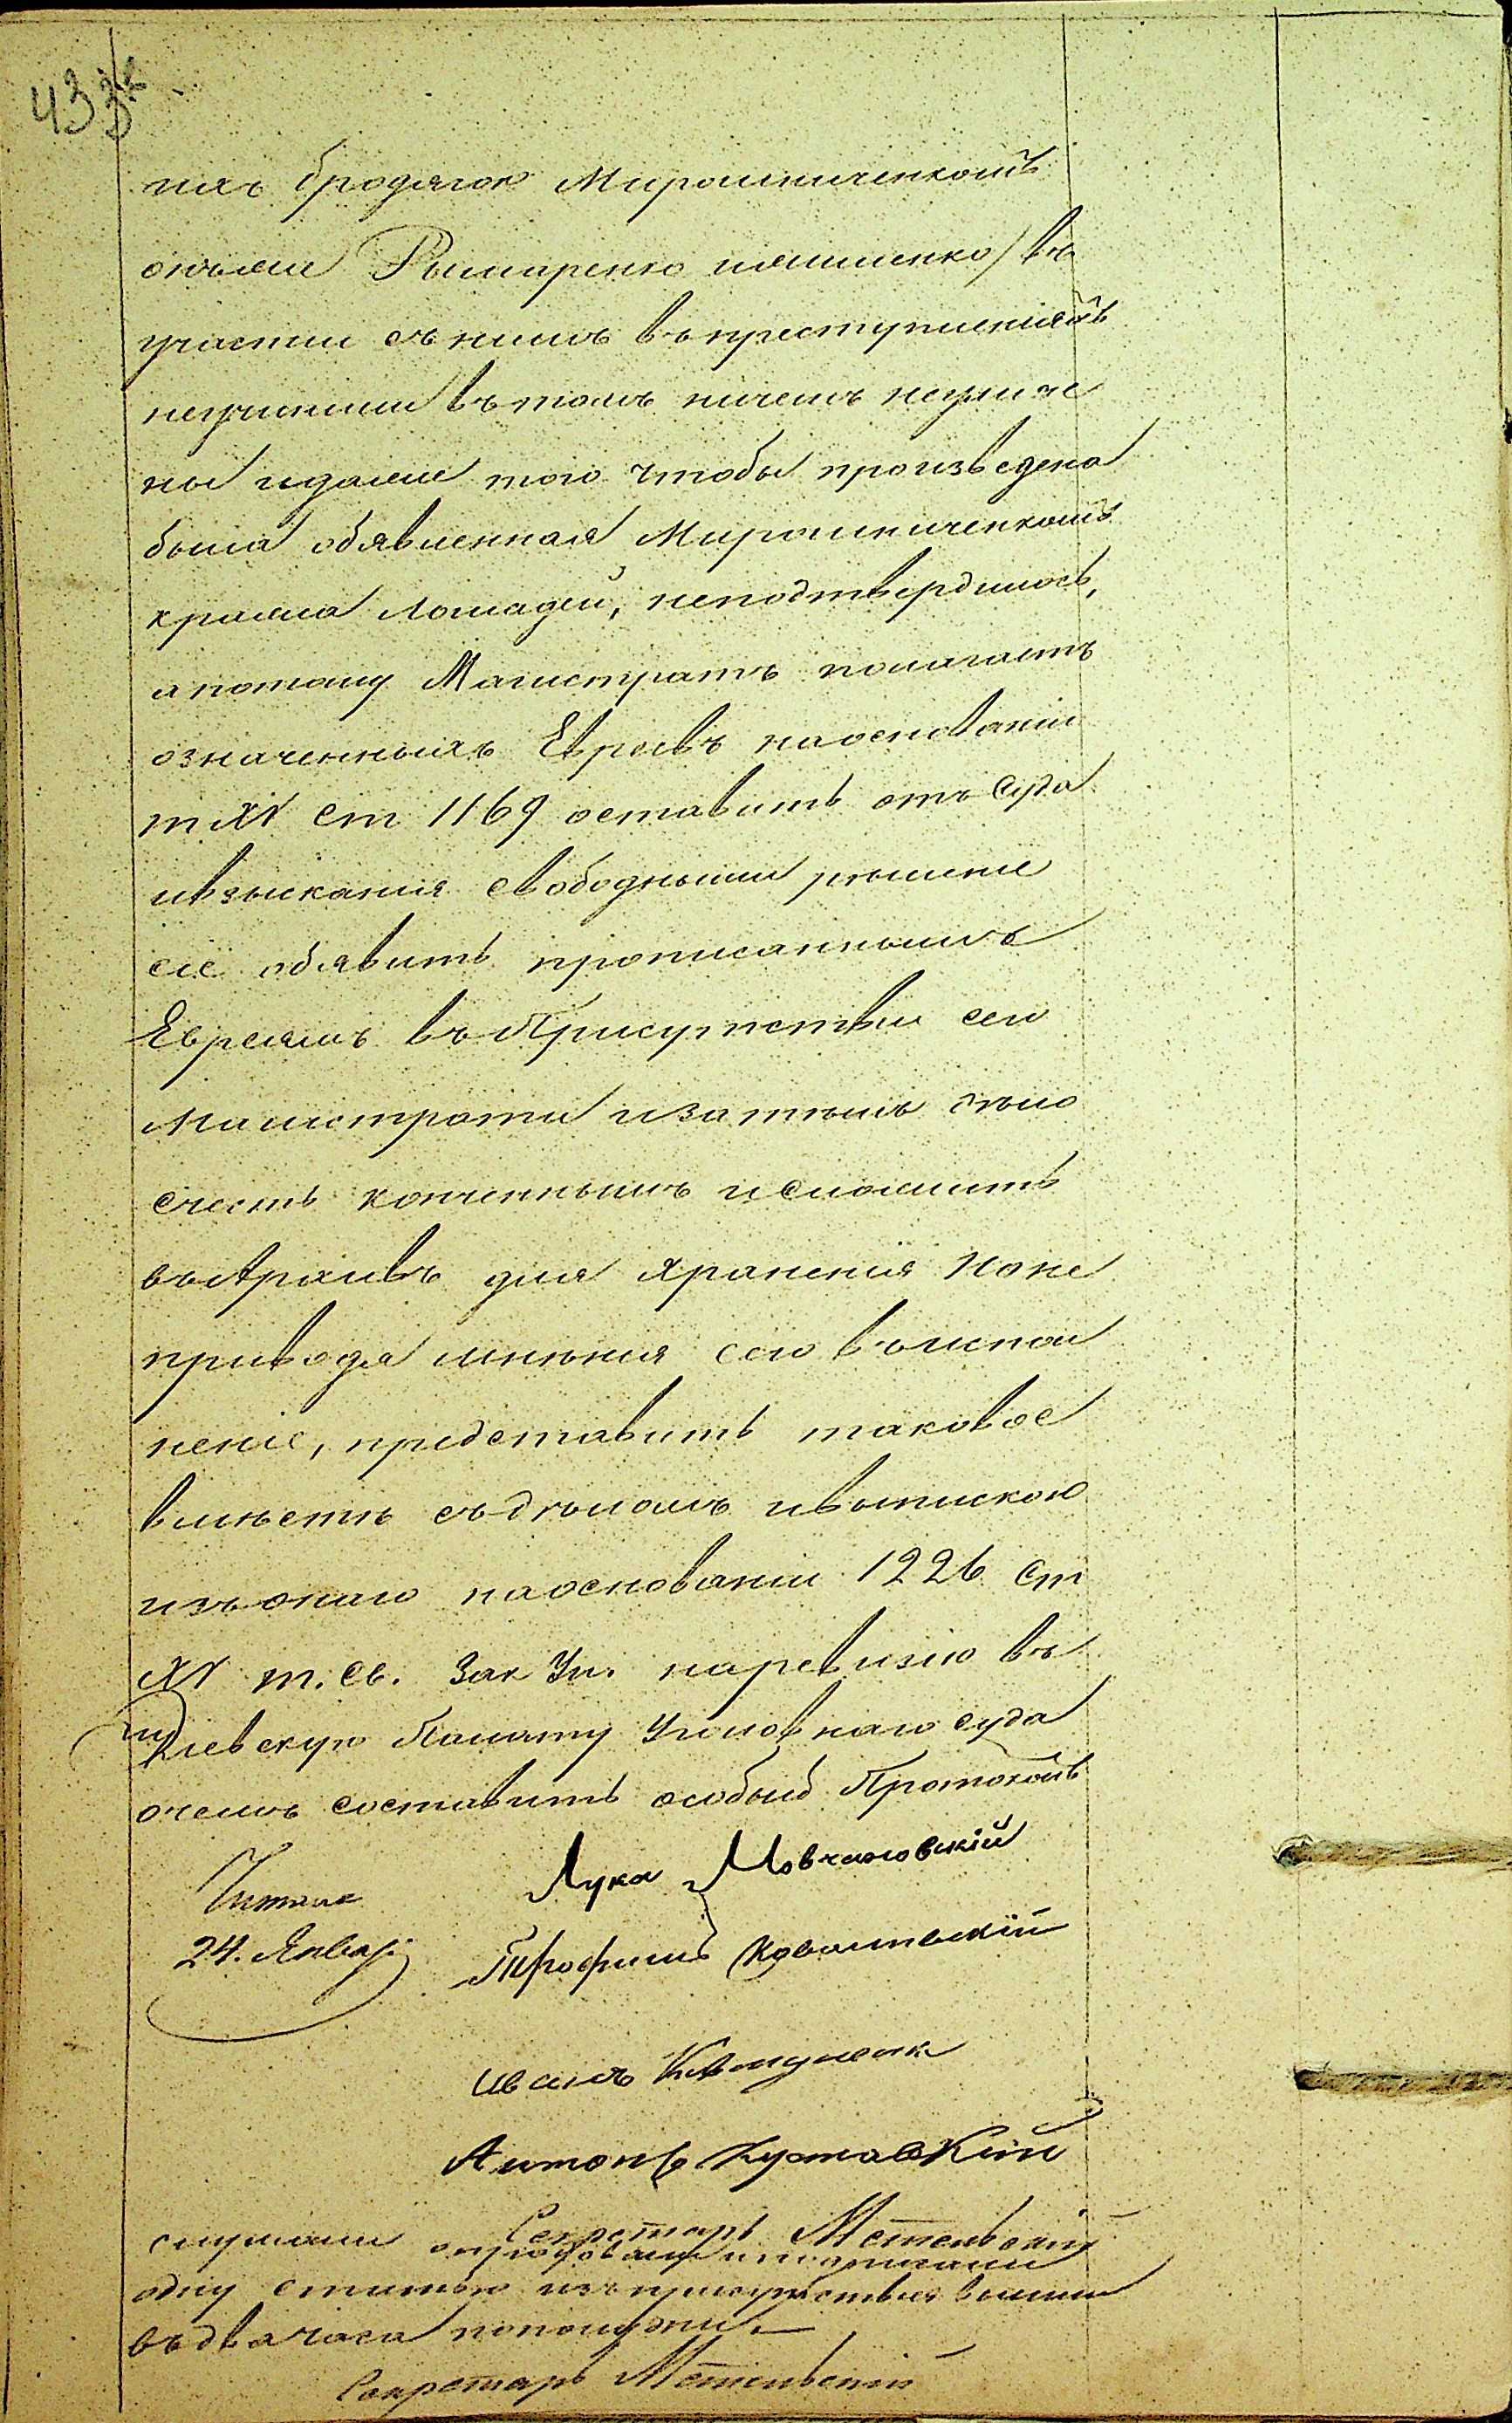 433
нихъ бродягою Мирошниченкомъ
онъ же Рымаренко  / въ
участии съ нимъ въ преступленіяхъ
 въ томъ ничемъ неуличе
ны и даже того чтобы произведена
была обявленная Мирошниченкомъ
кража Лошадей, неподтвердилось,
а потому Магистратъ полагаетъ
означенныхъ Евреевъ на основаніи
т XV ст 1169 оставить отъ Суда
и взысканія свободными решеніе
сіе обявить прописаннымъ
Евреямъ въ Присутствіи сего
Магистрата и за темъ дѣло
счесть конченнымъ и сложить
въ Архивъ для храненія Но не
приводя мнѣнія сего въ испол
неніе, представить таковое
вмѣстѣ съ дѣломъ и выпискою
изъ онаго на основаніи 1226 ст
XV т. Св. Зак Уг. на ревизію въ
Кіевскую Палату Уголовнаго суда
о чемъ составить особый Протоколъ
Читалъ
24. Январ
Лука Мовчановскій
Трофимъ Ковалевскій
Иванъ
Антонъ
Секретарь Метельскій
слушали опробовали и подписали
одну статью изъ присутствія вышли
въ два часа пополудни
Секретарь Метельскій